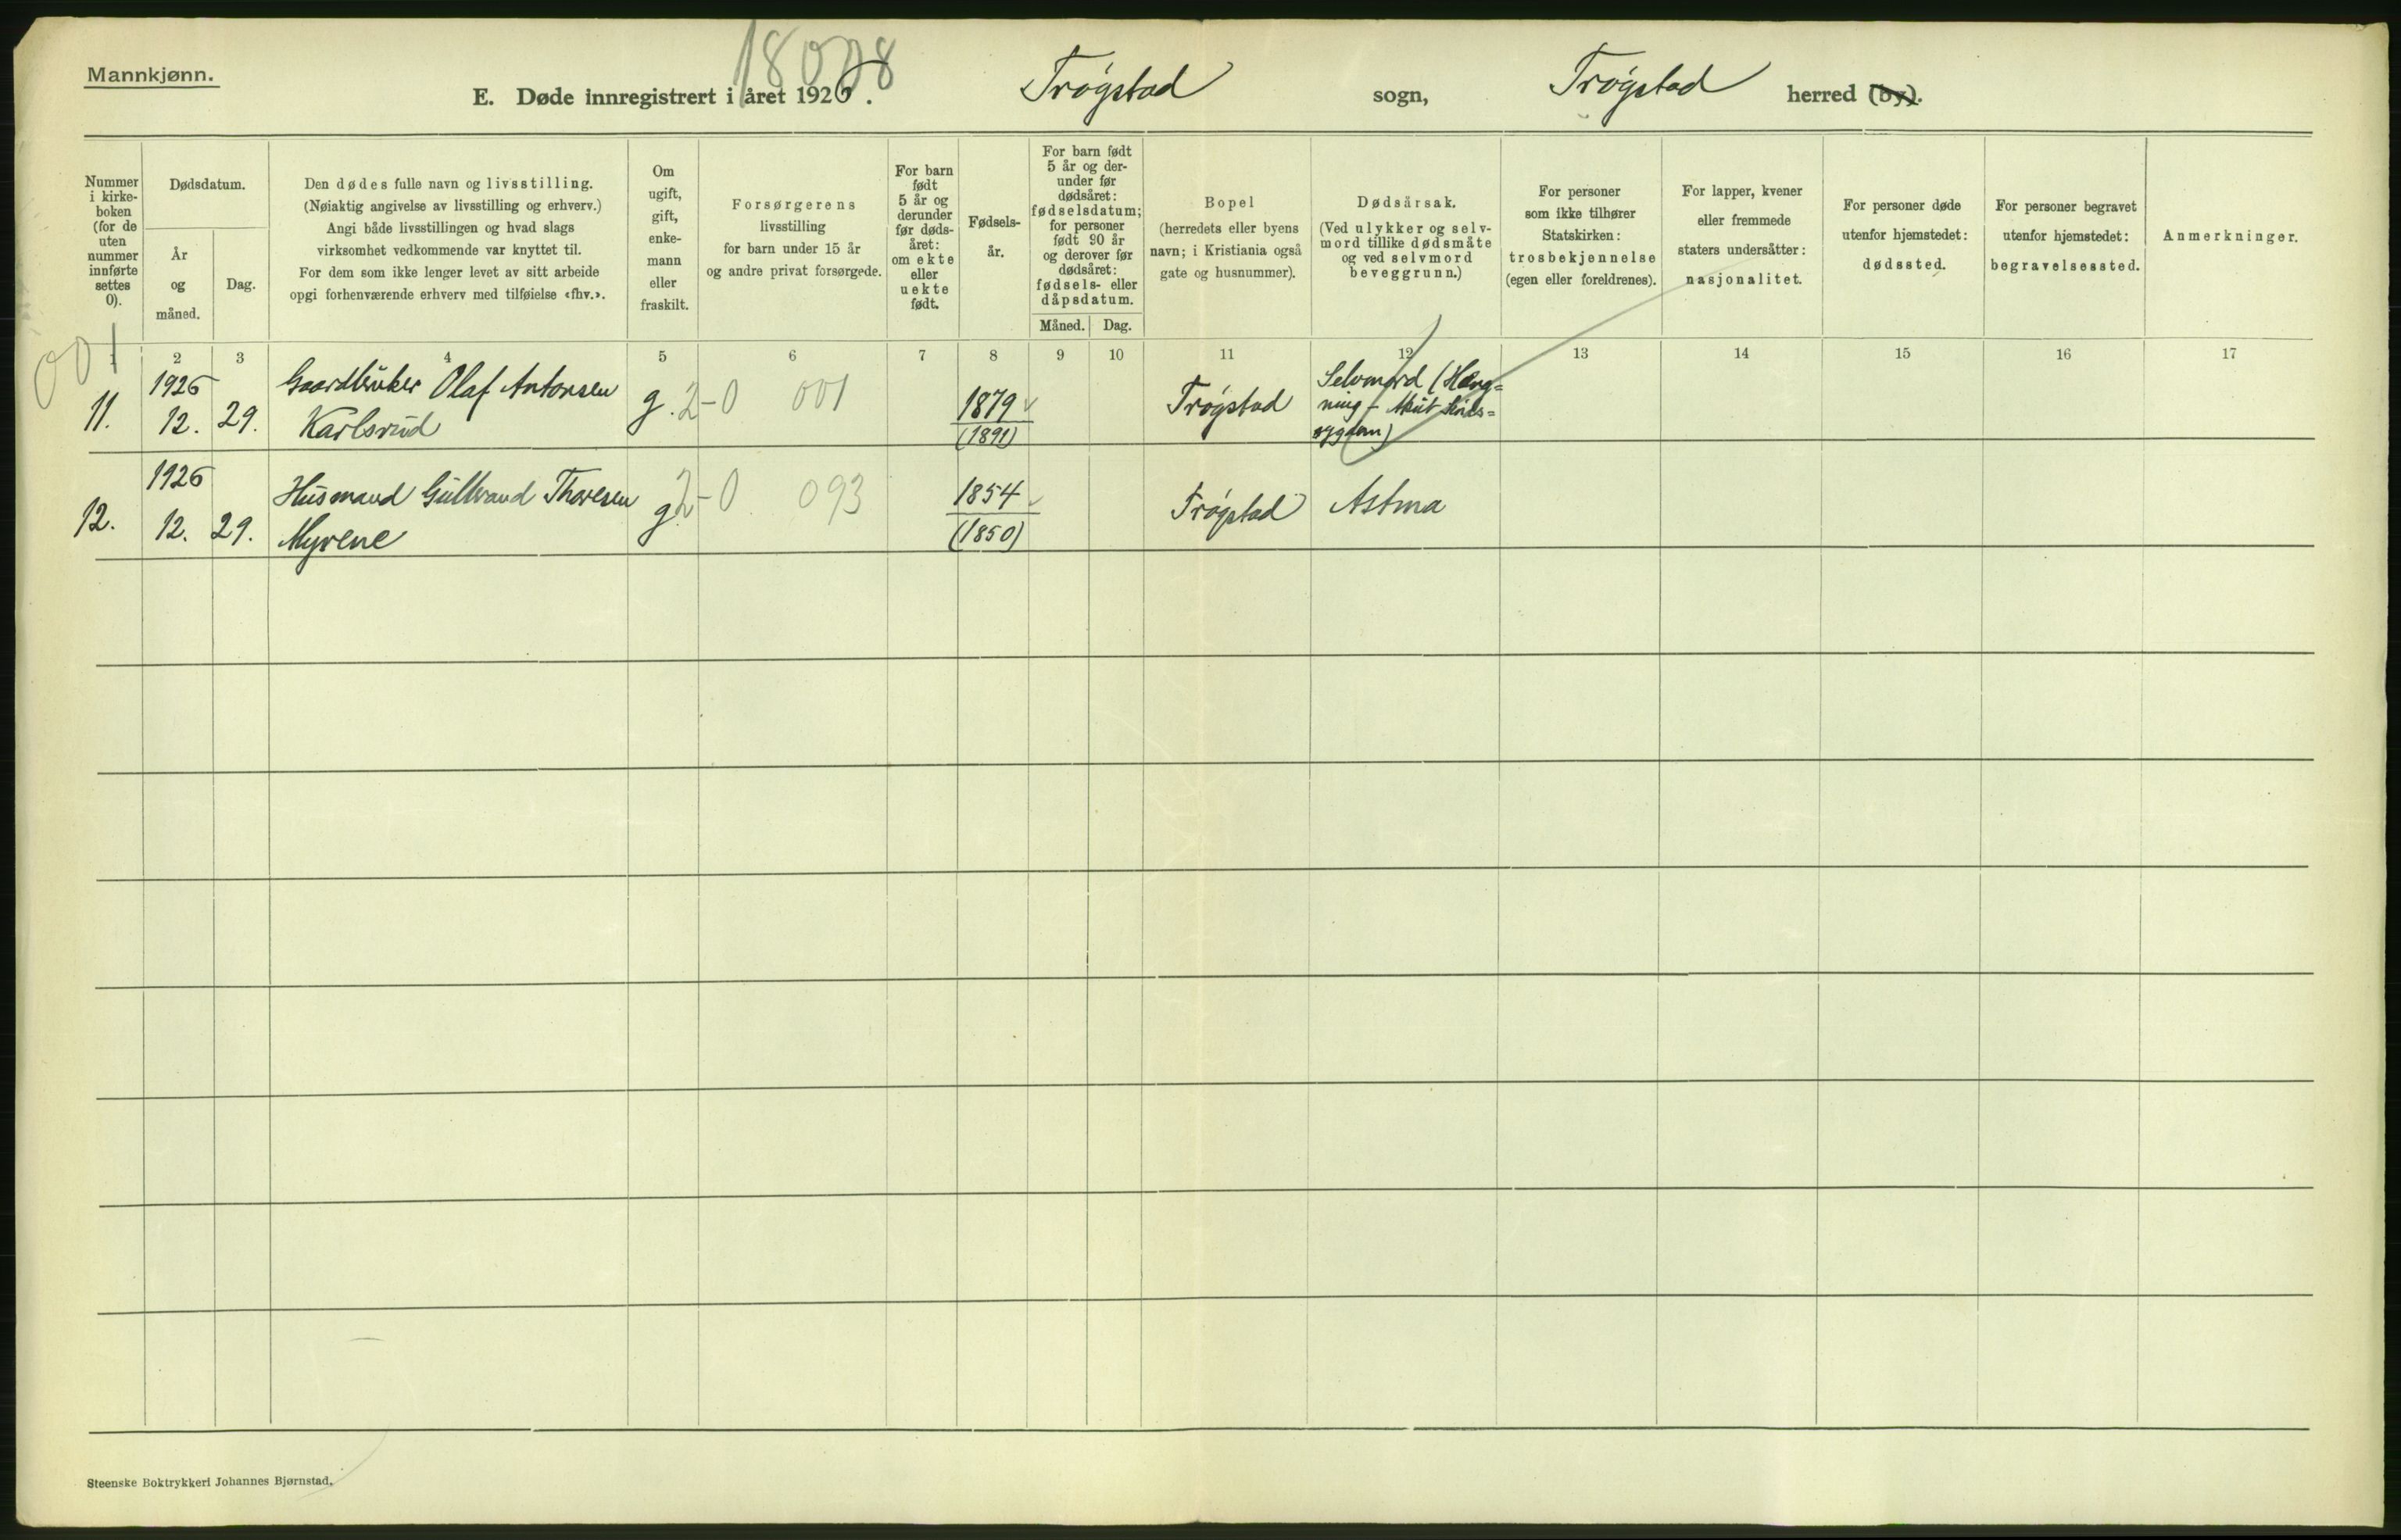 18008
Mannkjønn.
E. Døde innregistrert i året 1926. Trøgstad sogn, Trøgstad herred (by).
Nummer
i kirke-
boken
(for de
uten
nummer
innførte
settes
0).
Dødsdatum.
År
og
måned.
Dag.
Den dødes fulle navn og livsstilling.
(Nøiaktig angivelse av livsstilling og erhverv.)
Angi både livsstillingen og hvad slags
virksomhet vedkommende var knyttet til.
For dem som ikke lenger levet av sitt arbeide
opgi forhenværende erhverv med tilføielse «fhv.».
Om
ugift,
gift,
enke-
mann
eller
fraskilt.
Forsørgerens
livsstilling
for barn under 15 år
og andre privat forsørgede.
For barn
født
5 år og
derunder
før døds-
året:
om ekte
eller
uekte
født.
Fødsels-
år.
For barn født
5 år og der-
under før
dødsåret:
fødselsdatum;
for personer
født 90 år
og derover før
dødsåret:
fødsels- eller
dåpsdatum.
Måned. Dag.
Bopel
(herredets eller byens
navn; i Kristiania også
gate og husnummer).
Dødsårsak.
(Ved ulykker og selv-
mord tillike dødsmåte
og ved selvmord
beveggrunn.)
For personer
som ikke tilhører
Statskirken:
trosbekjennelse
(egen eller foreldrenes).
For lapper, kvener
eller fremmede
staters undersåtter:
nasjonalitet.
For personer døde
utenfor hjemstedet:
dødssted.
For personer begravet
utenfor hjemstedet:
begravelsessted.
Anmerkninger.
1 2 3 4 5 6 7 8 9 10 11 12 13 14 15 16 17
001
11. 1926 12. 29. Gaardbruker Olaf Antonsen
Karlsrud
g. 2-0 001
1879
(1891)
Trøgstad
Selvmord (Hæng-
ning - Akut Sinds-
sygdom)
12. 1926 12. 29. Husmand Gulbrand Thoresen
Myrene
g. 2-0 093
1854
(1850)
Trøgstad Astma
Steenske Boktrykkeri Johannes Bjørnstad.